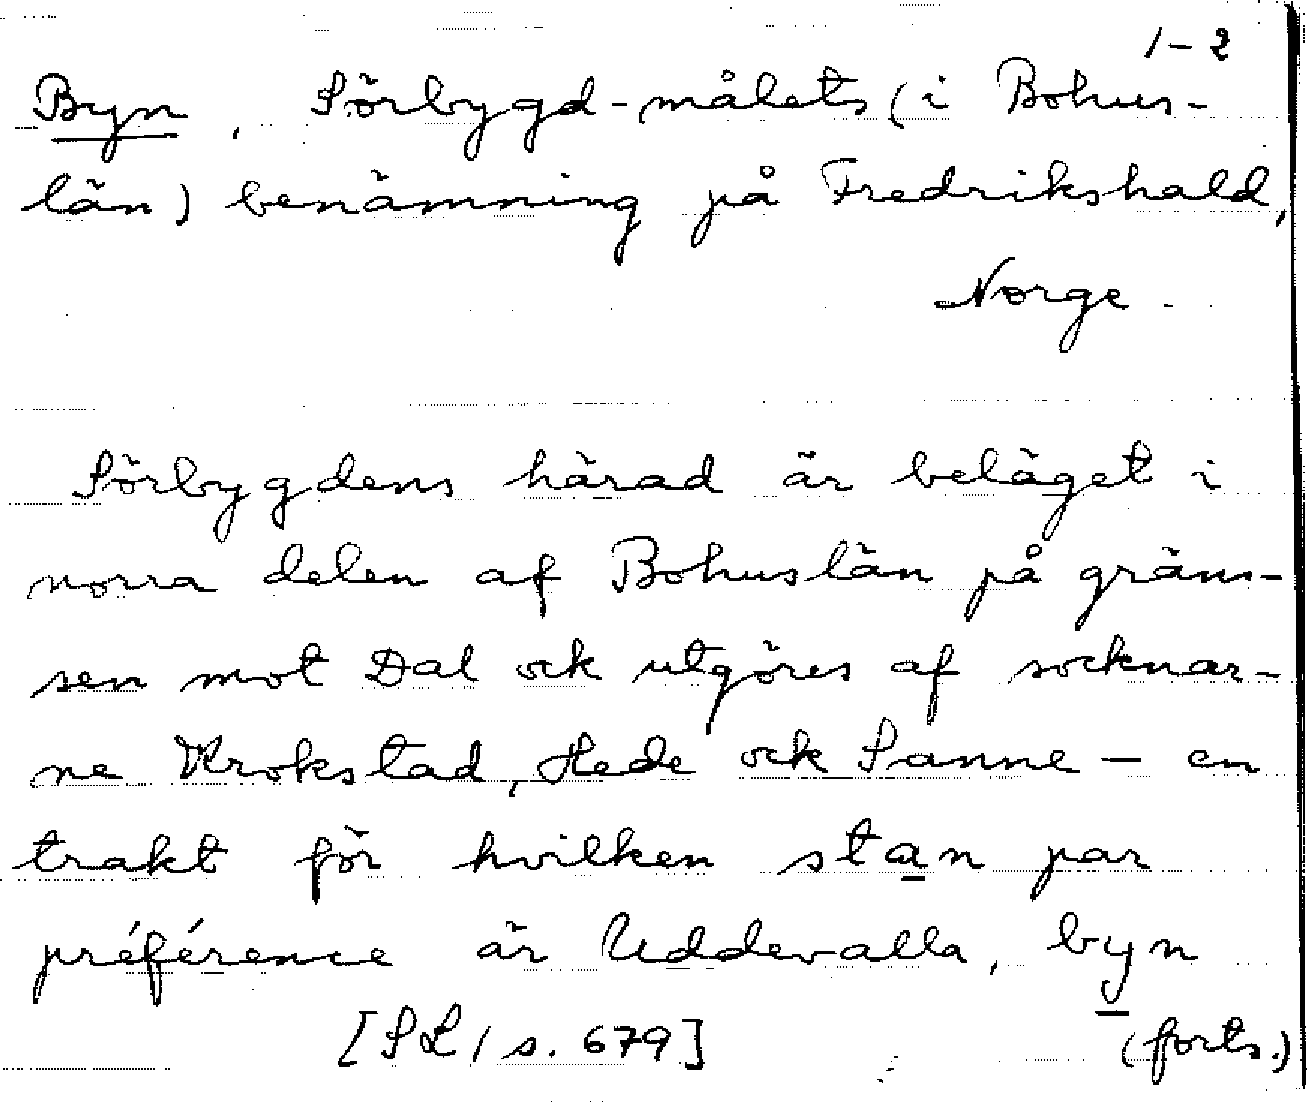 1-2
Byn, Sörbygd-målets (i Bohus-
län) benämning på Fredrikshald,
Norge.
Sörbygdens härad är beläget i
norra delen af Bohuslän på gräns-
sen mot Dal ock utgöres af socknar-
ne Krokstad, Hede ock Sanne – en
trakt för hvilken stan par
préférence är Uddevalla, byn
[SL 1 s. 679] (forts.)